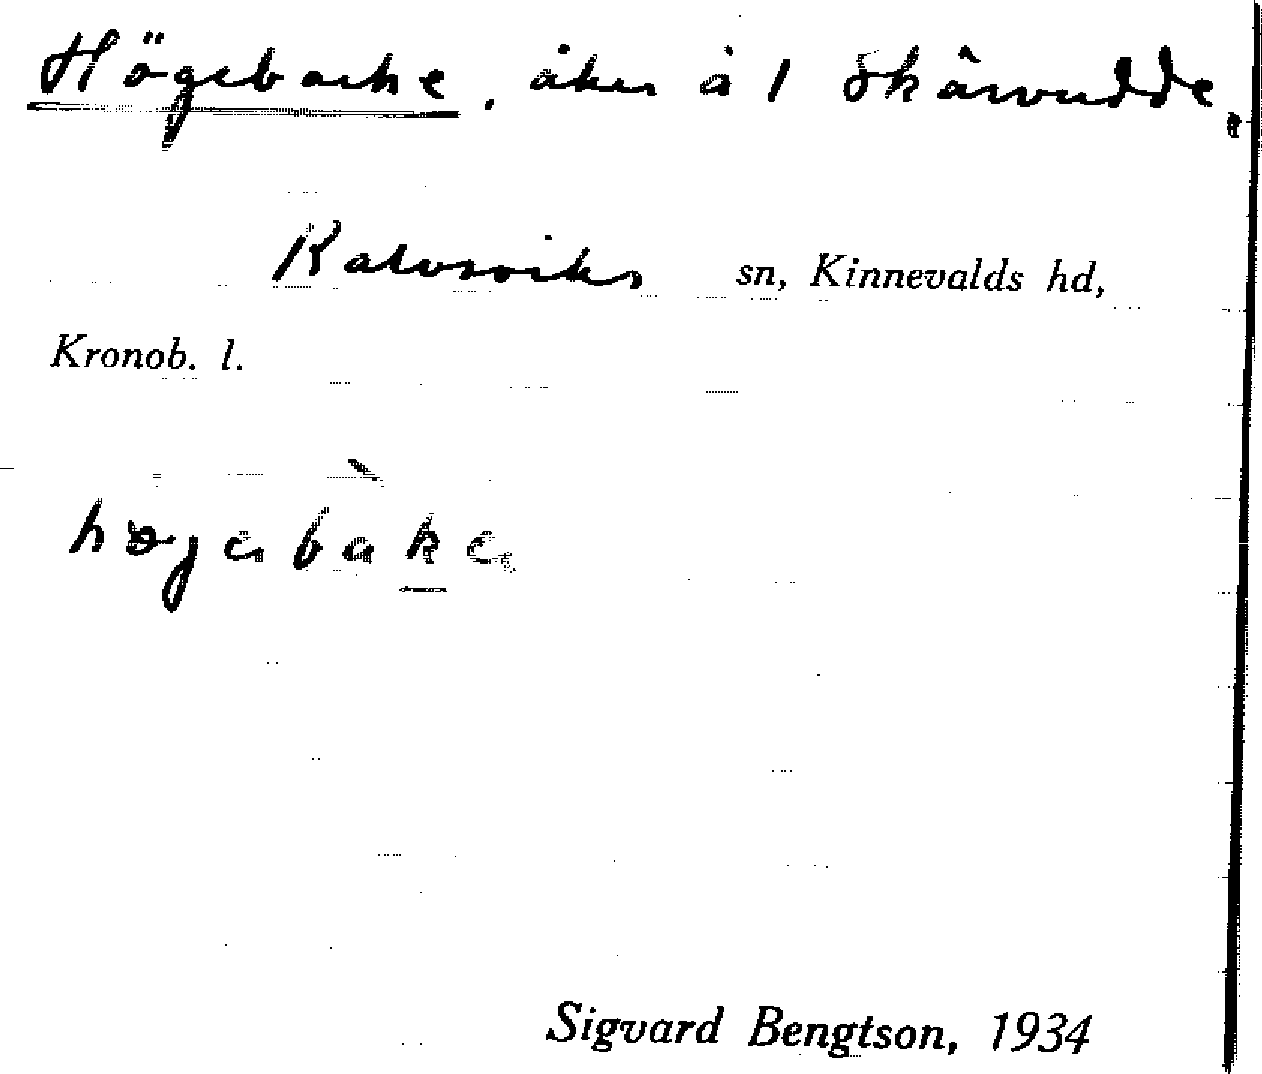 Högebacke, åker å 1 Skärvudde,
Kalvsviks sn, Kinnevalds hd,
Kronob. l.
Sigvard Bengtson, 1934